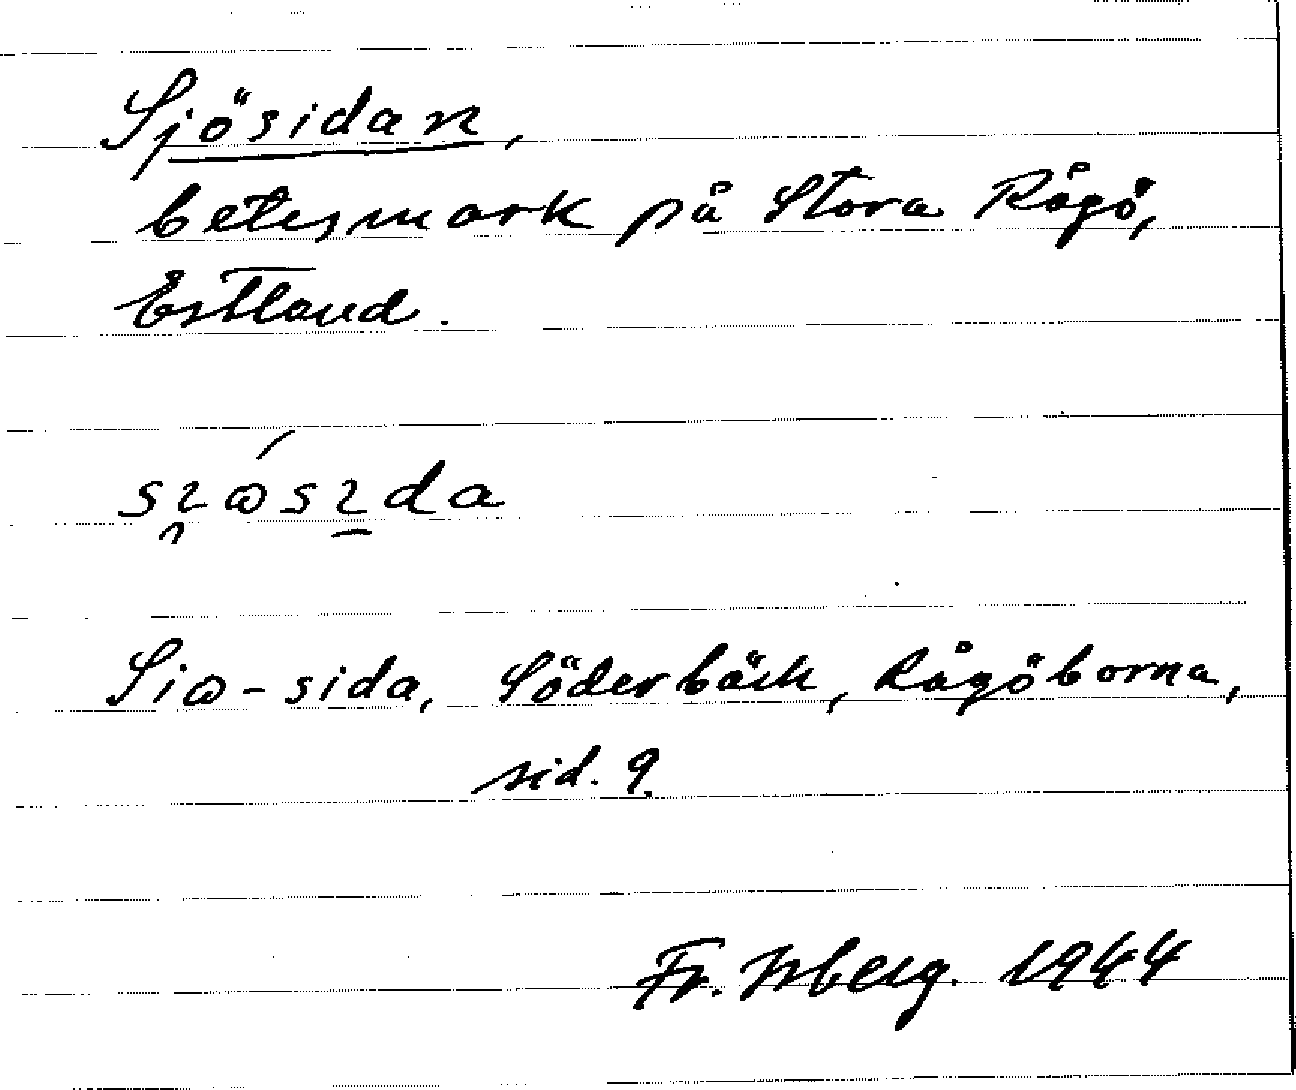 Sjösidan,
betesmark på Stora Rågö,
Estland.
sɿ̯ɷ́sɿ̠da
Siɷ-sida, Söderbäck, Rågöborna,
sid. 9.
Fr. Isberg. 1944